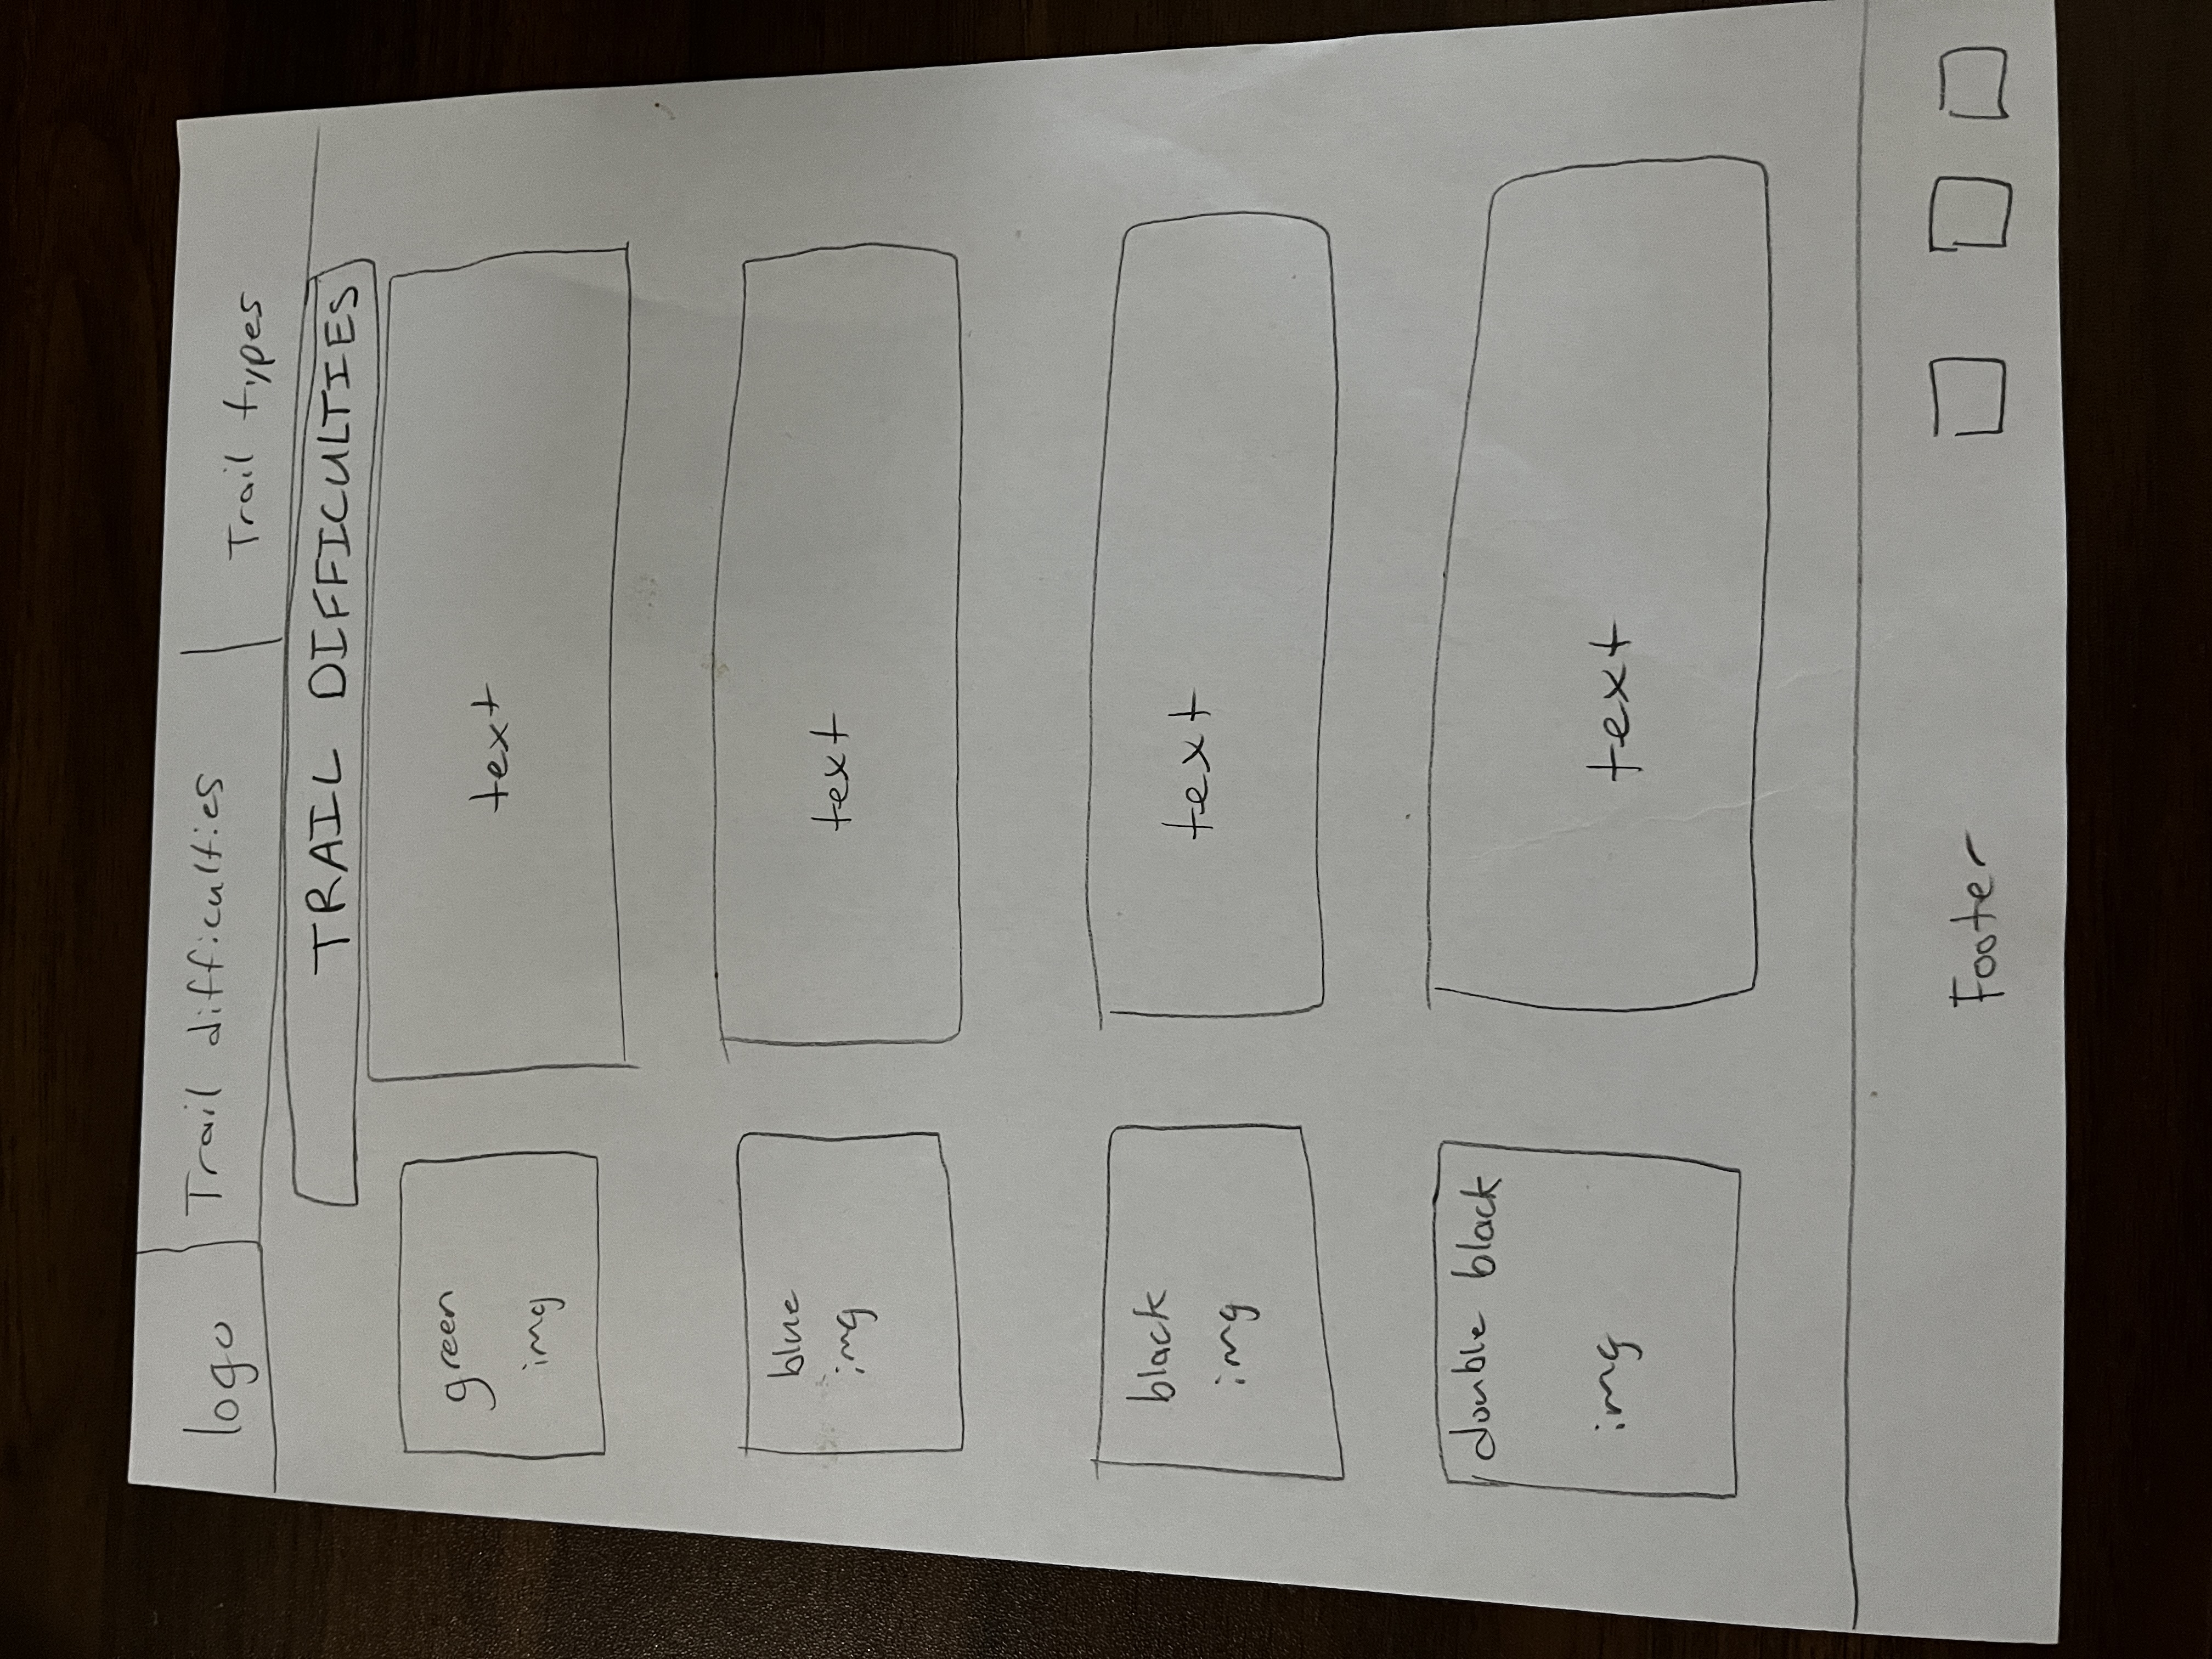 logo
Trail difficulties
Trail types
TRAIL DIFFICULTIES
green
img
text
blue
img
text
black
img
text
double black
img
text
Footer